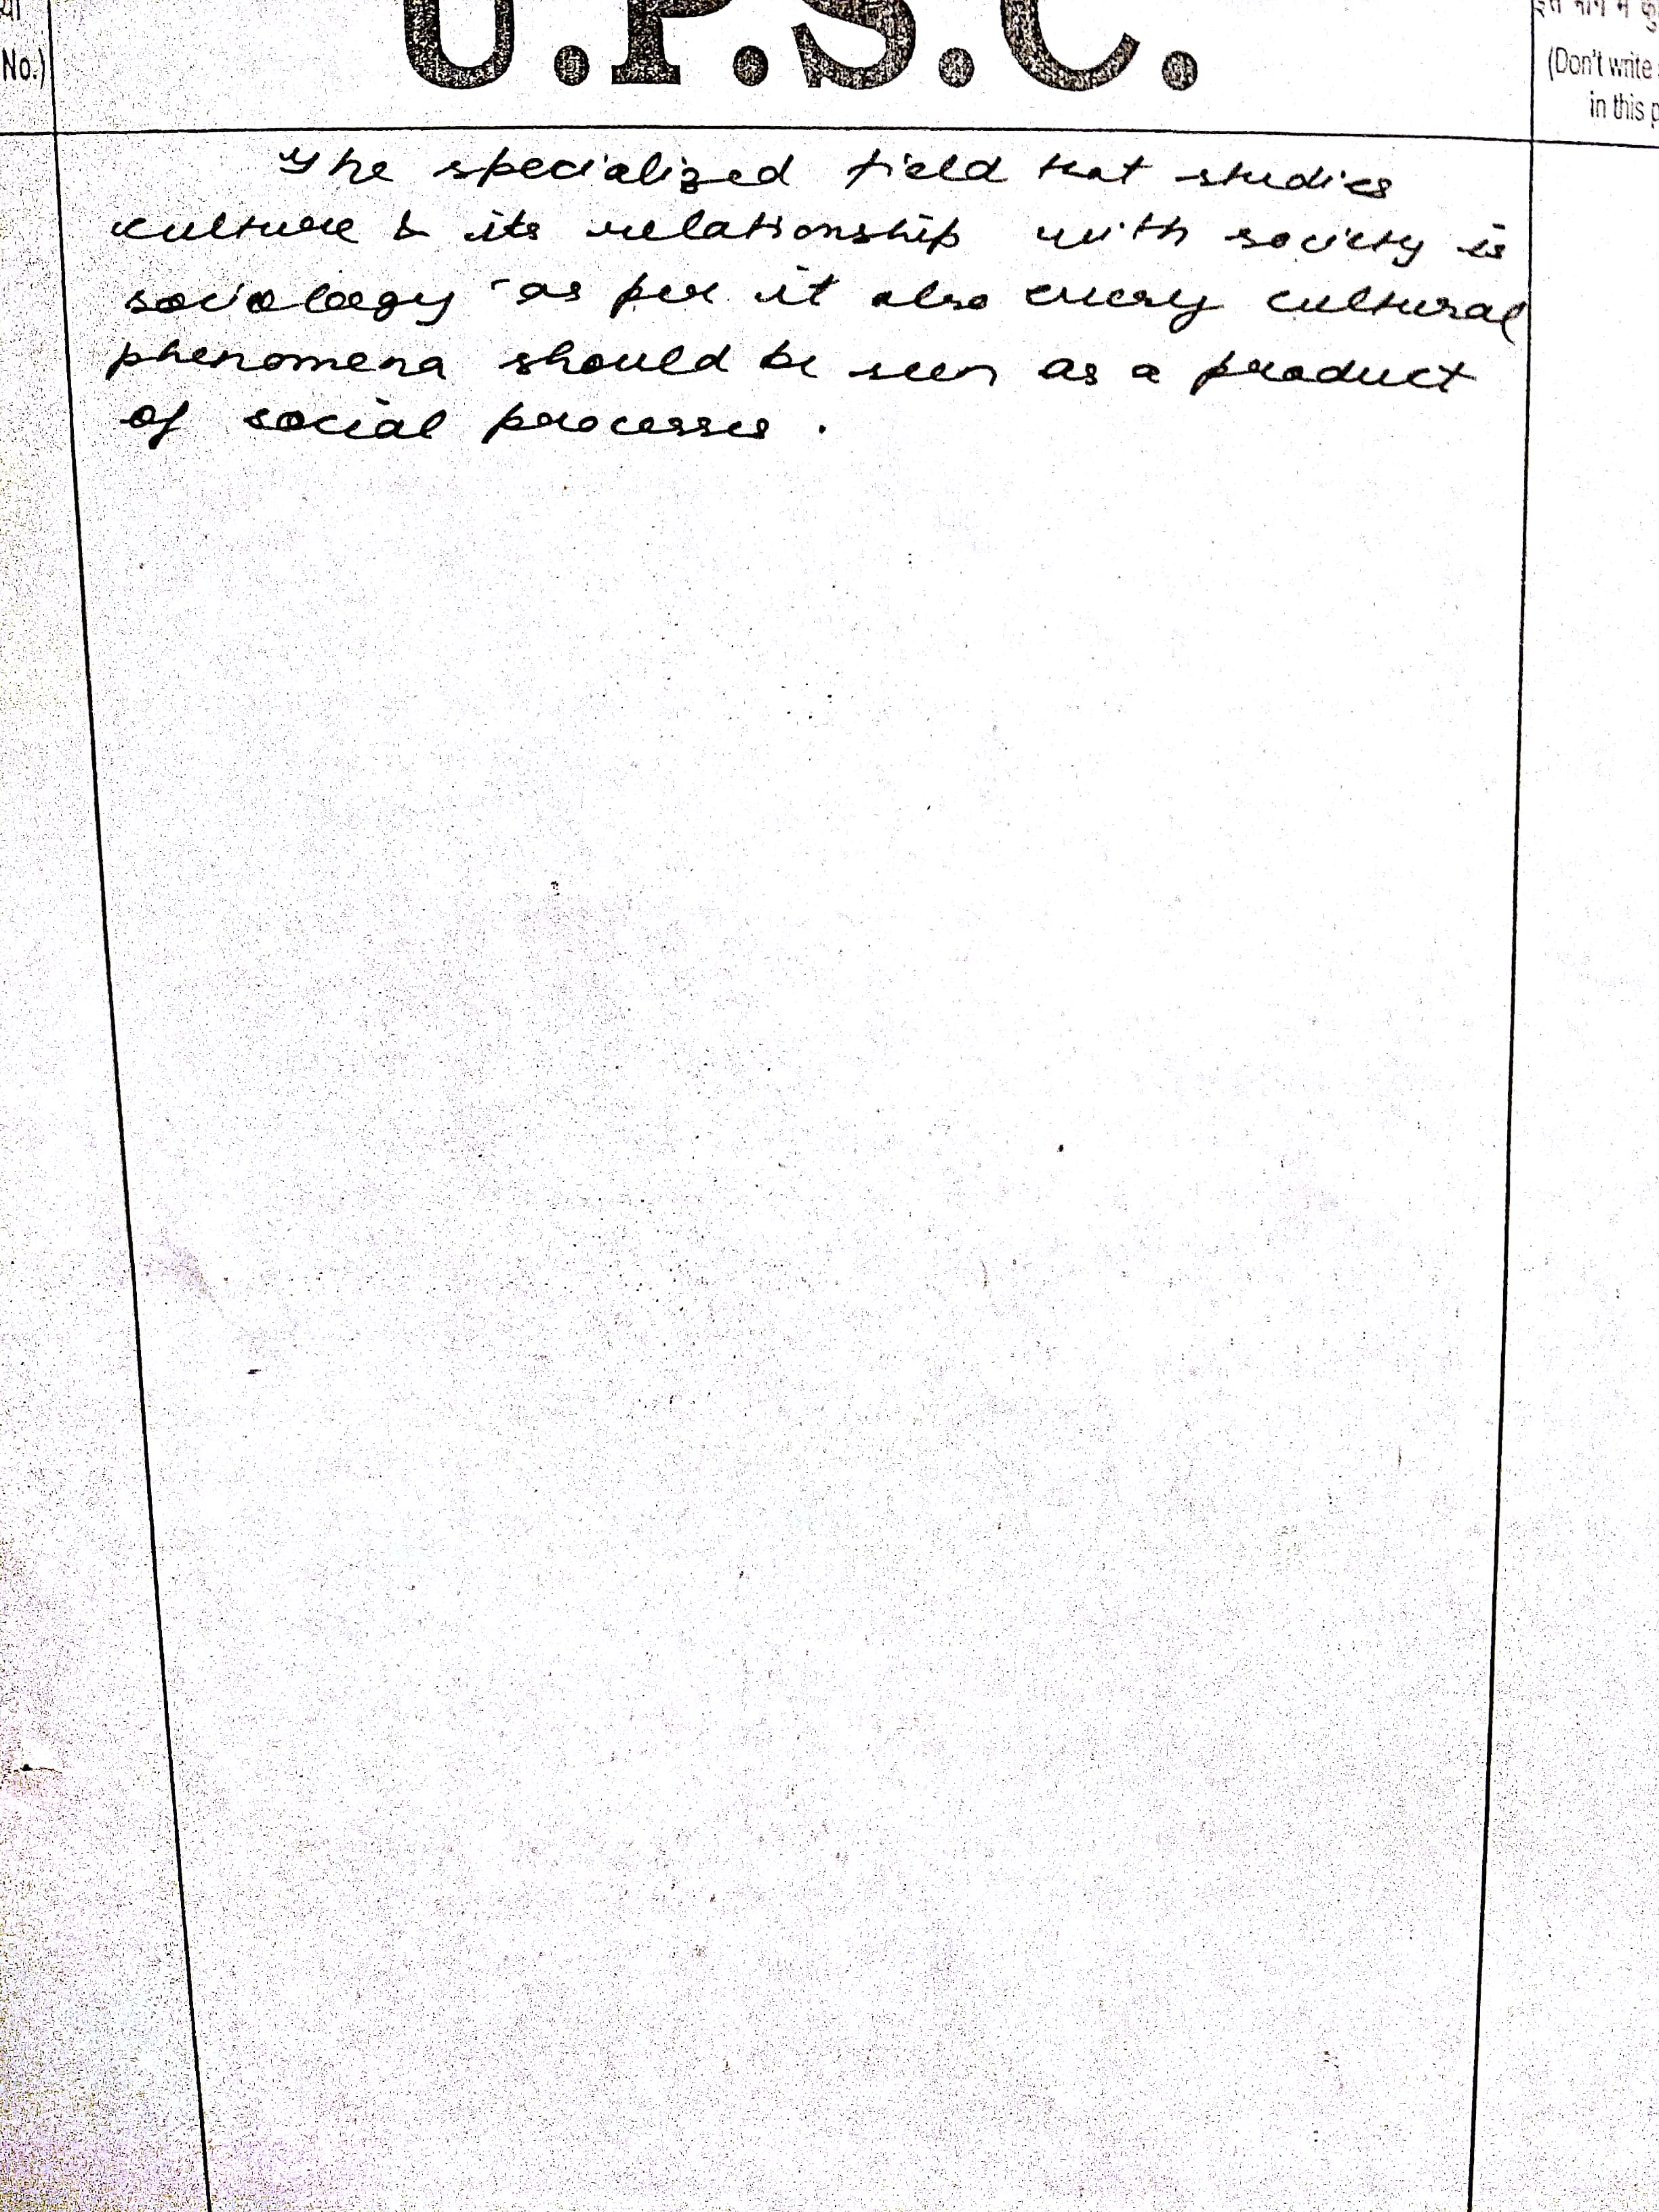 U.P.S.C.
No.)
(Don't write
in this
The specialized field that studies
culture & its relationship with society is
sociology as per it also every cultural
phenomena should be seen as a product
of social processes.